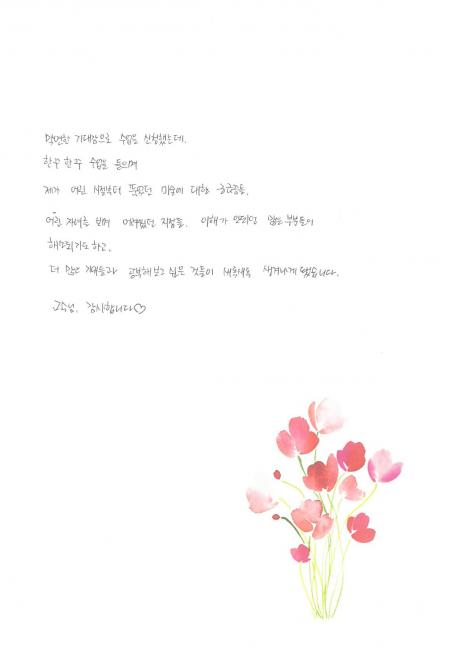 막연한 기대감으로 수업을 신청했는데,
한주 한주 수업을 들으며
제가 어린 시절부터 품었던 미술에 대한 궁금증들,
어린 자녀를 보며 어려웠던 지점들, 이해가 안되던 많은 부분들이
해소되기도 하고,
더 많은 기대들과 공부해보고 싶은 것들이 새록새록 생겨나게 됐습니다.
교수님, 감사합니다♡